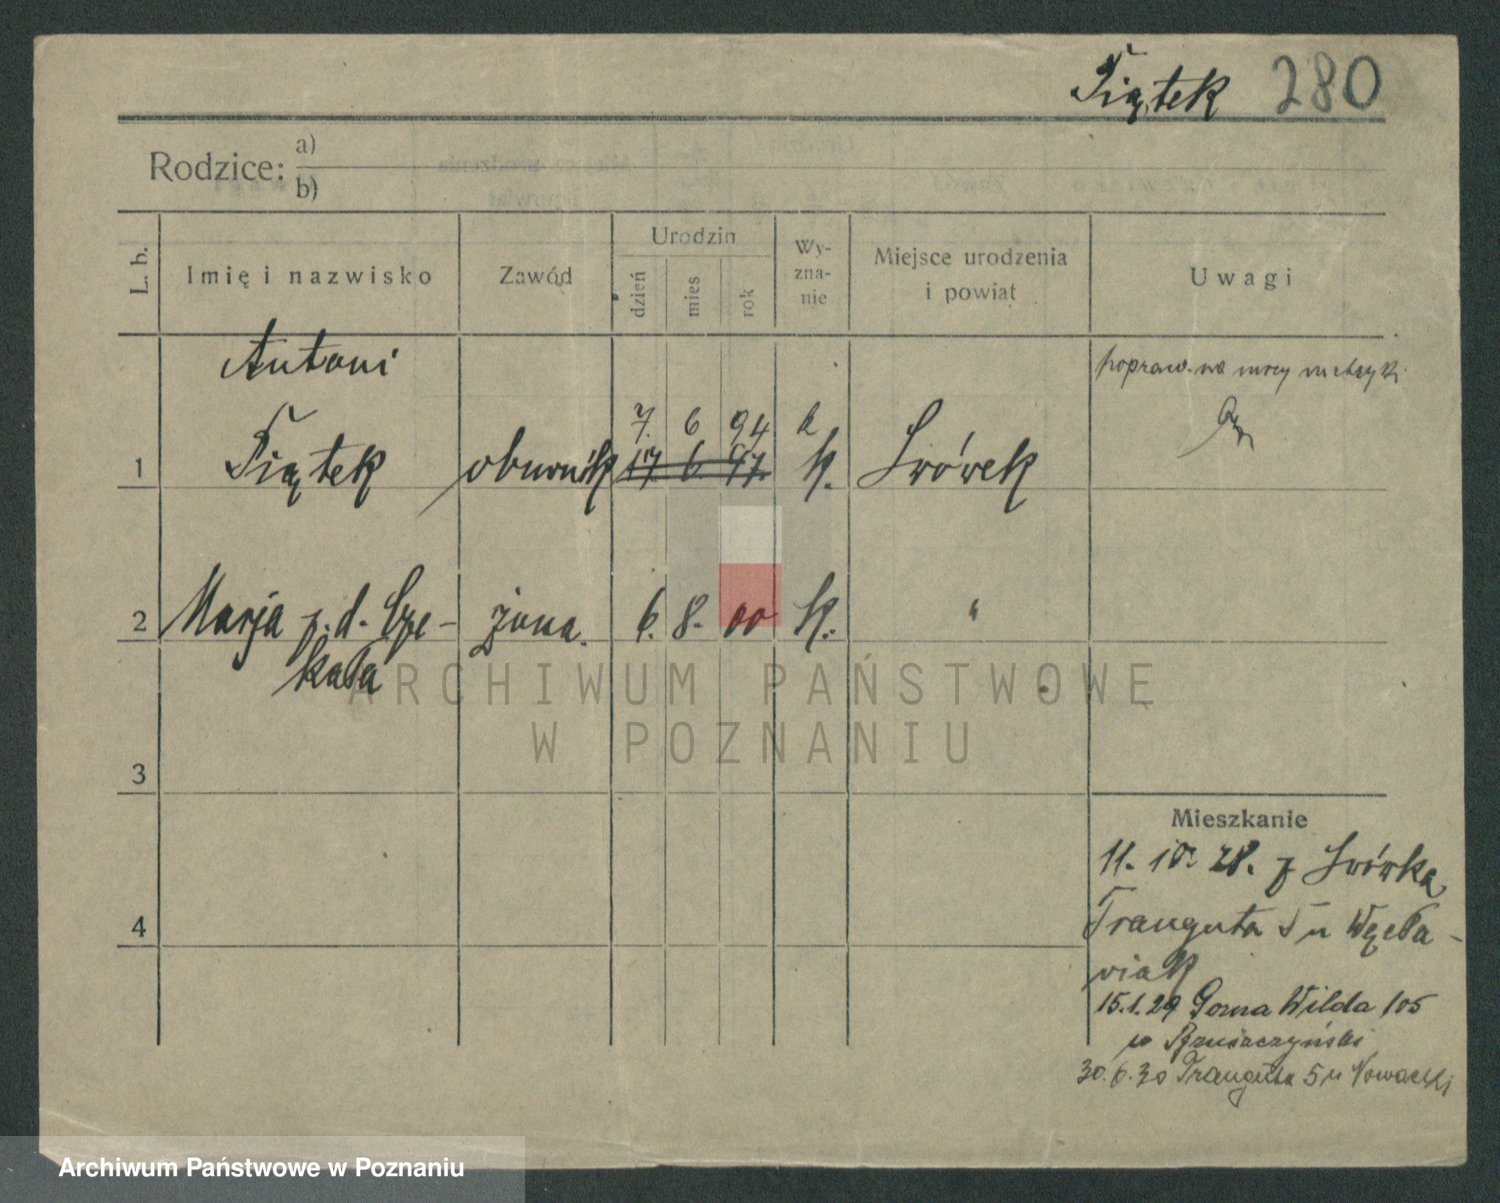 Piątek 280
Rodzice: a)
b)
L. b. Imię i nazwisko Zawód Urodzin dzień mies rok Wyznanie Miejsce urodzenia i powiat Uwagi
Antoni popraw. na mocy metryki
7. 6 94
1 Piątek obuwnik 17 6 97. k. Lwówek
2 Marja z. d. Cze- żona. 6. 8. 00 k. "
kała
ARCHIWUM PAŃSTWOWE
W POZNANIU
3
Mieszkanie
11. 10. 28. z Lwówka
4 Trauguta 5 u
wiak
15.1.29 Górna Wilda 105
u
30.6.30 Trauguta 5 u Nowacki
Archiwum Państwowe w Poznaniu